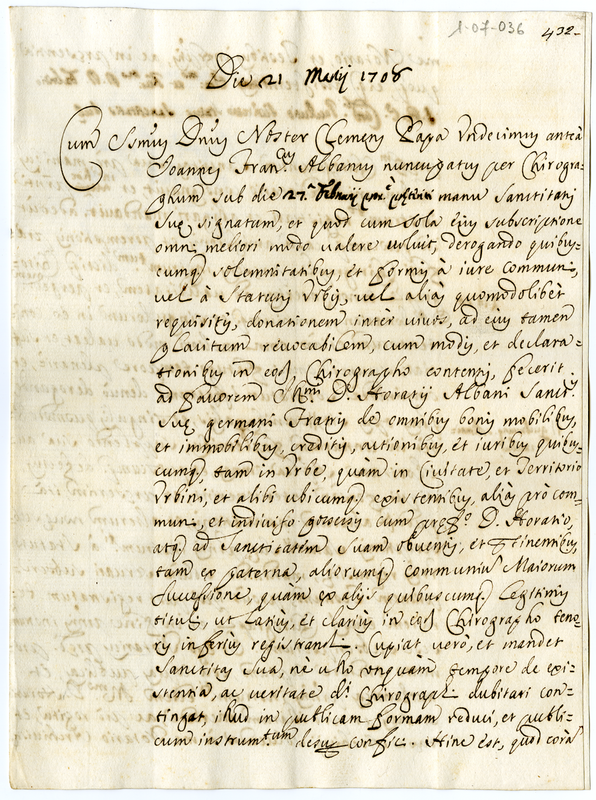 1-07-036
432-
Die 21 Maij 1708
Cum Ssmus Dnus Noster Clemens Papa Undecimus anteà
Joannes Fran.cus Albanus nuncupatus per Chirogra-
phum sub die 27.a februarij manu Sanctitatis
Suę signatum, et quod cum sola eius subscriptione
omni meliori modo valere voluit, derogando quibus-
cumq; solemnitatibus, et formis à iure communi,
vel à Statutis Urbis, vel aliàs quomodolibet
requisitis, donationem inter vivos, ad eius tamen
placitum revocabilem, cum modis, et declara-
tionibus in eod. Chirographo contentis, fecerit
ad favorem D. Horatij Albani Sanct.is
Suę germani Fratris de omnibus bonis mobilibus,
et immobilibus, creditis, actionibus, et iuribus quibus-
cumq; tam in Urbe, quàm in Civitate, et Territorio
Urbini, et alibi ubicumq; existentibus, aliàs pro com-
muni, et indiviso possessis cum D. Horatio,
atq; ad Sanctitatem Suam obventis, et ptinentibus,
tam ex paterna, aliorumq; communium Maiorum
successione, quam ex alijs quibuscumq; legitimis
titulis, ut latius, et clarius in eod. Chirographo teno-
ris inferius registrand. Cupiat vero, et mandet
Sanctitas Sua, nè ullo unquam tempore de exi-
stentia, ac veritate d.i Chirographi dubitari con-
tingat, illud in publicam formam reduci, et publi-
cum instrum.tum desup confici. Hinc est, quod corà